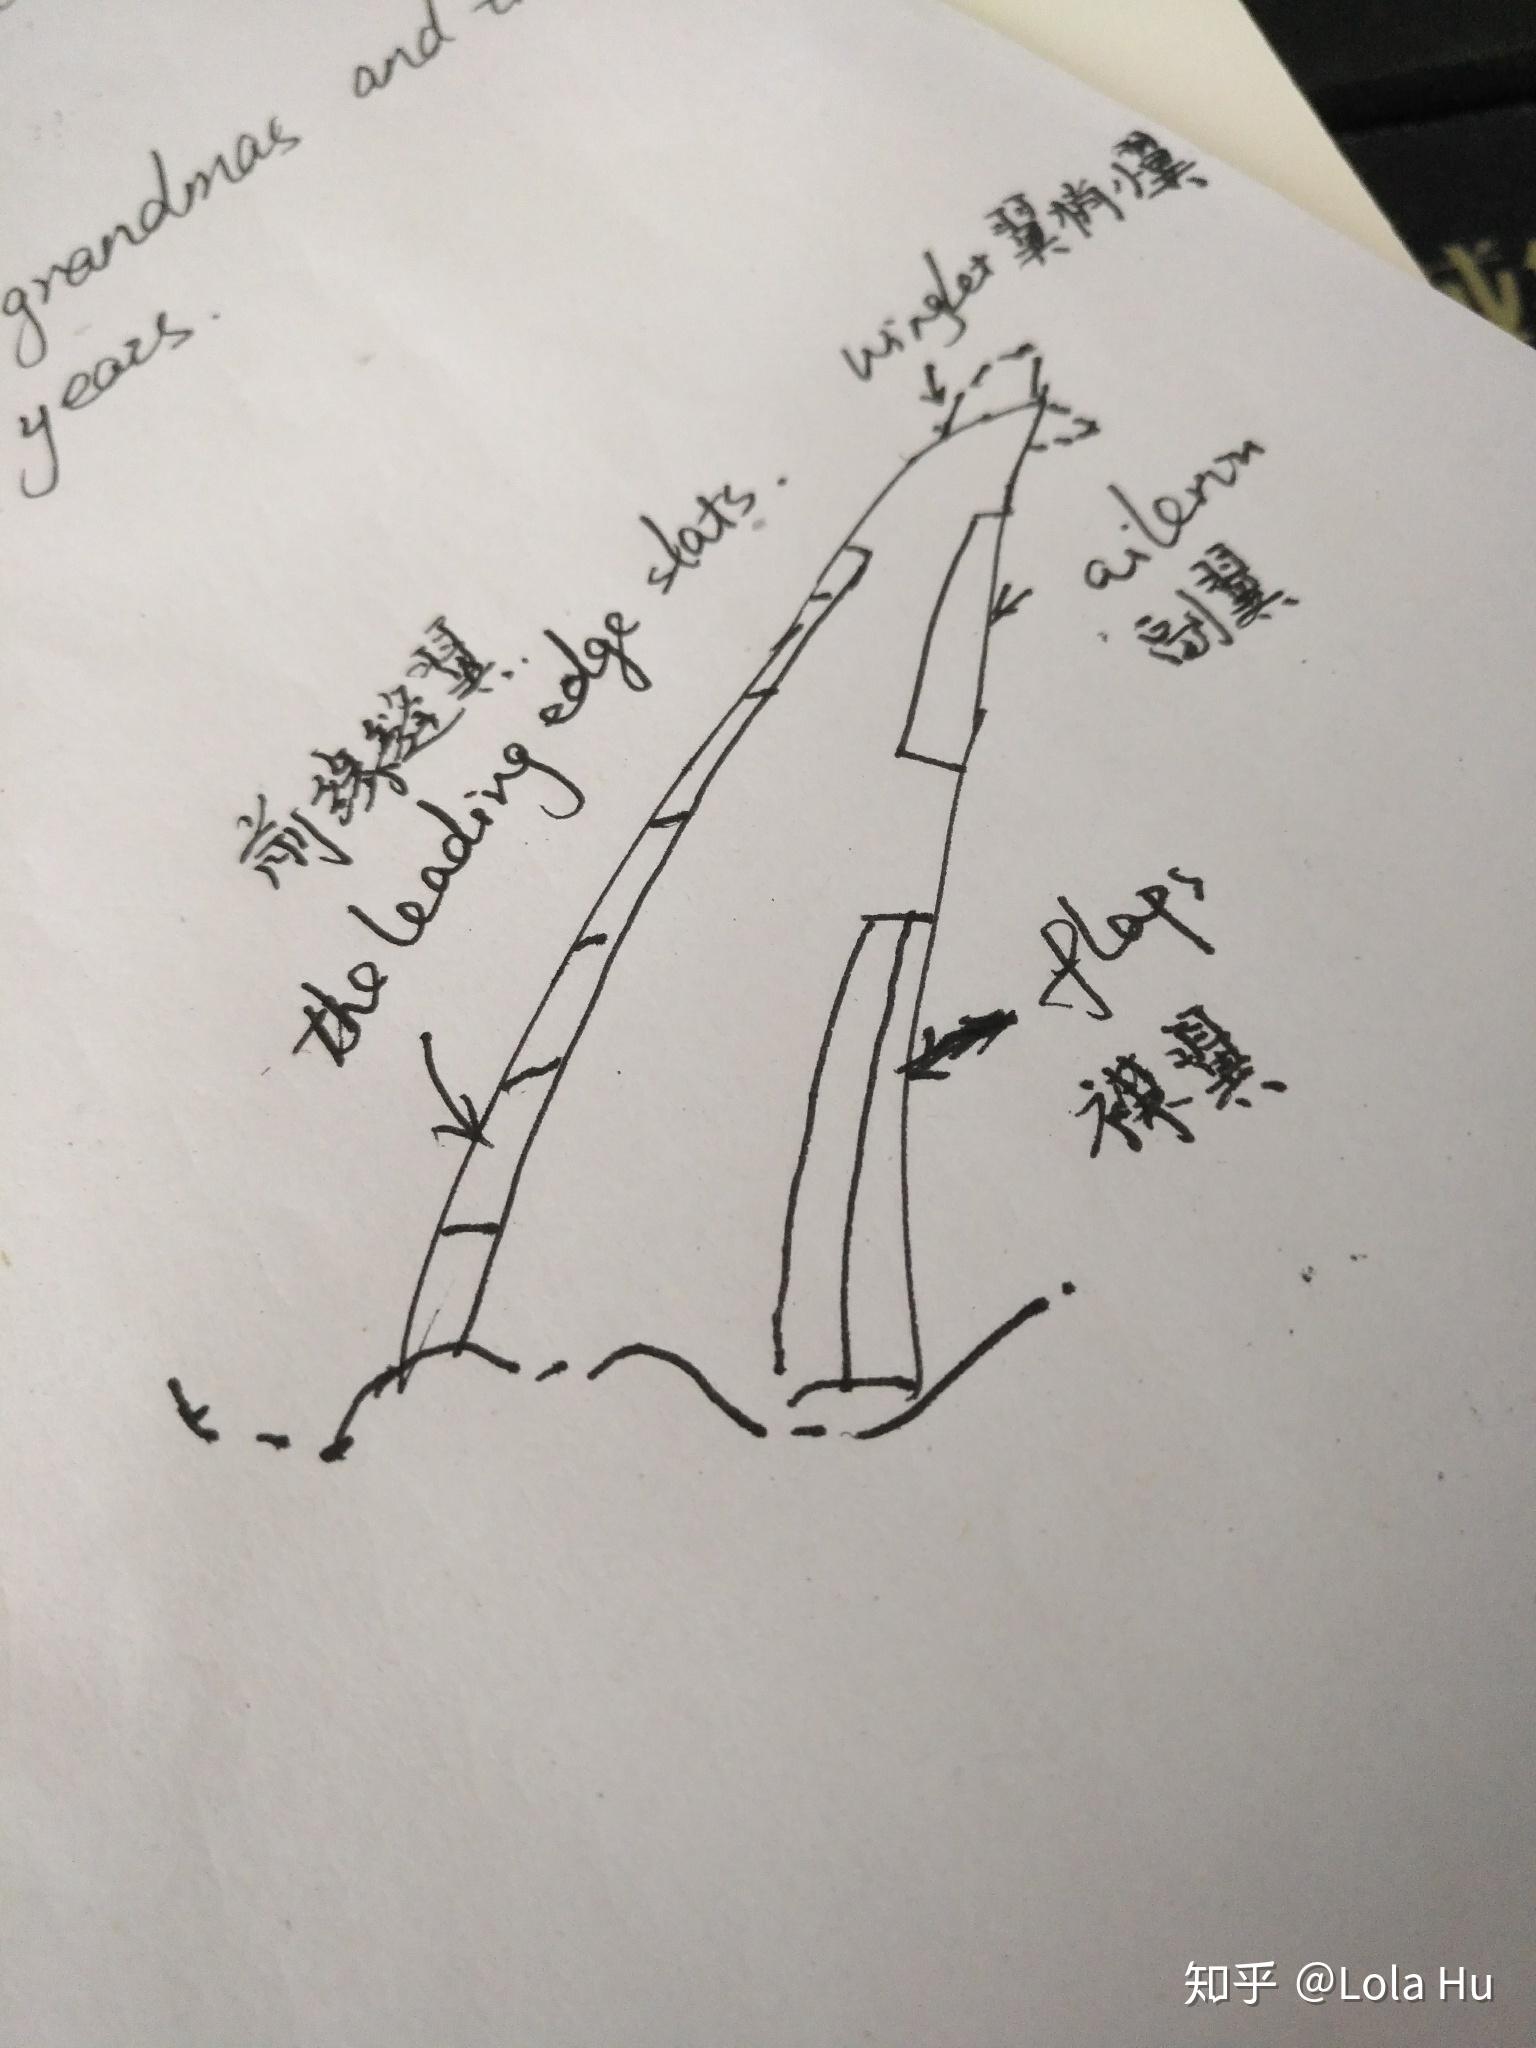 grandmas and
years.
winglet 翼梢小翼
aileron
副翼
前缘缝翼..
the leading edge slats.
flaps
襟翼
知乎 @Lola Hu